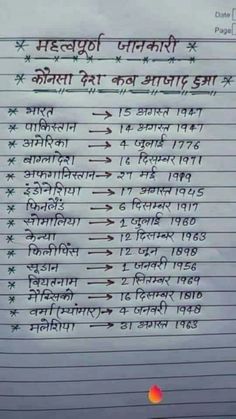 Date
Page
* महत्वपूर्ण जानकारी *
* कौनसा देश कब आजाद हुआ *
* भारत → 15 अगस्त 1947
* पाकिस्तान → 14 अगस्त 1947
* अमेरिका → 4 जुलाई 1776
* बांग्लादेश → 16 दिसम्बर 1971
* अफगानिस्तान → 27 मई 1919
* इंडोनेशिया → 17 अगस्त 1945
* फिनलैंड → 6 दिसम्बर 1917
* सोमालिया → 1 जुलाई 1960
* केन्या → 12 दिसम्बर 1963
* फिलीपिंस → 12 जून 1898
* सूडान → 1 जनवरी 1956
* वियतनाम → 2 सितम्बर 1969
* मैक्सिको → 16 दिसम्बर 1810
* वर्मा (म्यांमार) → 4 जनवरी 1948
* मलेशिया → 31 अगस्त 1963